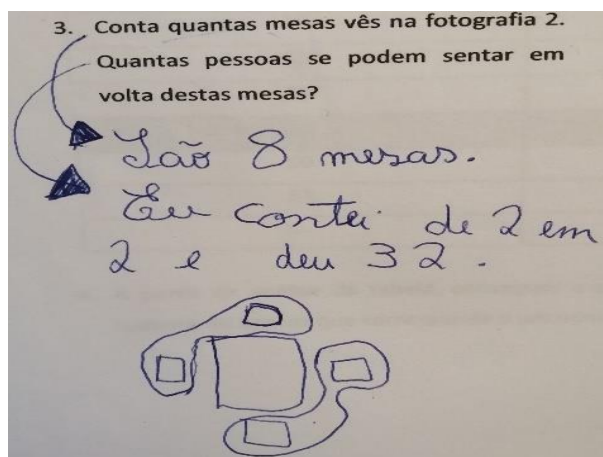 3. Conta quantas mesas vês na fotografia 2.
Quantas pessoas se podem sentar em
volta destas mesas?
São 8 mesas.
Eu contei de 2 em
2 e deu 32.